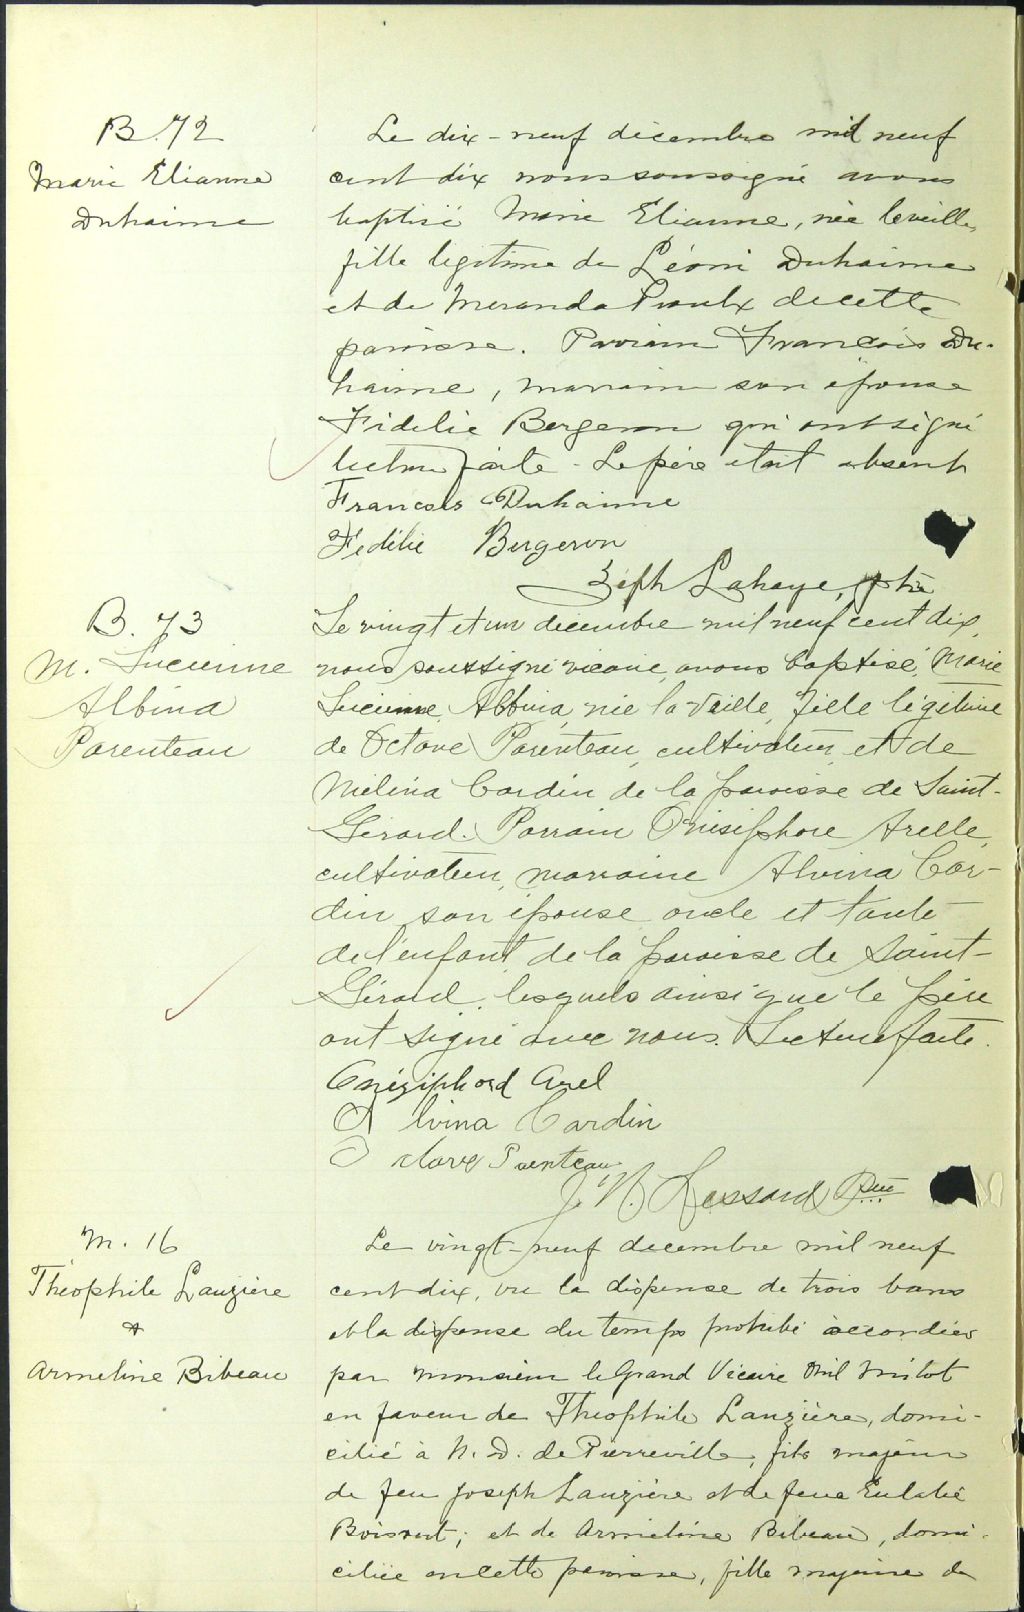 B. 72
Marie Elianne
Duhaime
Le dix-neuf décembre mil neuf
cent dix nous soussigné avons
baptisé Marie Elianne, née la veille,
fille légitime de Léoni Duhaime
et de Meranda Proulx de cette
paroisse. Parrain François Du-
haime, marraine son épouse
Fidelie Bergeron qui ont signé
lecture faite. Le père était absent
Francois Duhaime
Fedélie Bergeron
Zéph Lahaye, ptre
B. 73
M. Lucienne
Albina
Parenteau
Le vingt et un decembre mil neuf cent dix,
nous soussigné vicaire, avons baptisé, Marie
Lucienne, Albina, née la veille, fille légitime
de Octave Parenteau, cultivateur, et de
Mélina Cardin de la paroisse de Saint-
Gérard. Parrain Onésiphore Arelle,
cultivateur, marraine Alvina Car-
din son épouse oncle et tante
de l'enfant, de la paroisse de Saint-
Gérard, lesquels ainsi que le père
ont signé avec nous. Lecture faite.
Onéziphord Arel
Alvina Cardin
Octave Parenteau
J. N. Lessard Ptre
M. 16
Théophile Lauzière
&
Armeline Bibeau
Le vingt-neuf decembre mil neuf
cent dix, vu la dispense de trois bans
et la dispense du temps prohibé accordées
par monsieur le Grand Vicaire
en faveur de Théophile Lauzière, domi-
cilié à N. D. de Pierreville, fils majeur
de feu Joseph Lauzière et de feue Eulalie
Boisvert; et de Armeline Bibeau, domi-
ciliée en cette paroisse, fille majeure de